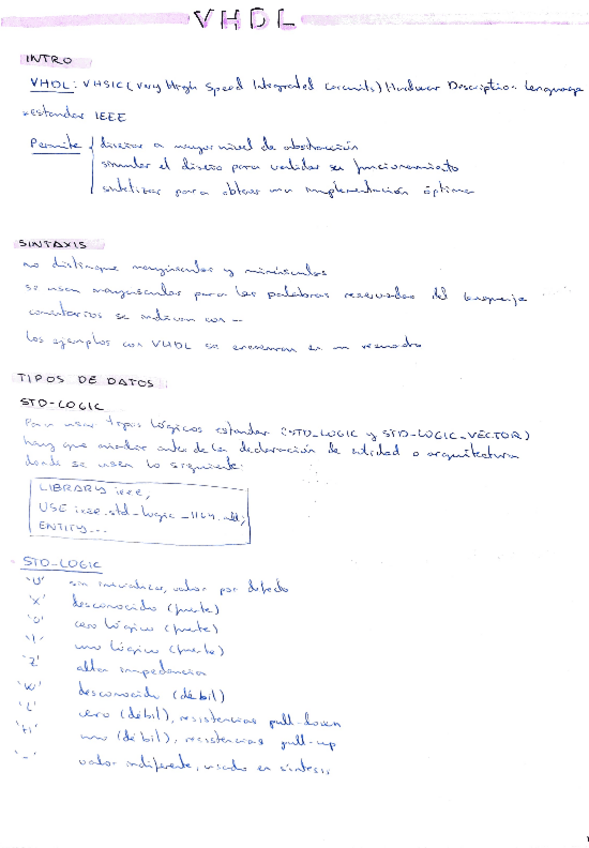 VHDL
INTRO
VHDL: VHSIC (Very High Speed Integrated Circuits) Hardware Description Lenguage
estandar IEEE
Permite { diseñar a mayor nivel de abstracción
simular el diseño para validar su funcionamiento
sintetizar para obtener una implementación óptima
SINTAXIS
no distingue mayúsculas y minúsculas
se usan mayúsculas para las palabras reservadas del lenguaje
comentarios se indican con --
los ejemplos con VHDL se encierran en un recuadro
TIPOS DE DATOS
STD-LOGIC
Para usar tipos lógicos estandar (STD_LOGIC y STD-LOGIC_VECTOR)
hay que añadir antes de la declaración de entidad o arquitectura
donde se usen lo siguiente:
LIBRARY ieee;
USE ieee.std-logic_1164.all;
ENTITY...
STD-LOGIC
'U' sin inicializar, valor por defecto
'X' desconocido (fuerte)
'0' cero lógico (fuerte)
'1' uno lógico (fuerte)
'Z' alta impedancia
'W' desconocido (débil)
'L' cero (débil), resistencias pull-down
'H' uno (débil), resistencias pull-up
'-' valor indiferente, usado en síntesis